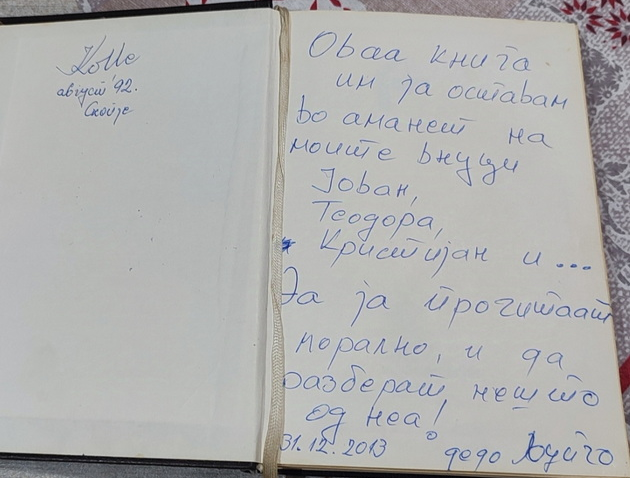 август '92.
Скопје
Оваа книга
им ја оставам
во аманет на
моите внуци
Јован,
Теодора,
Кристијан и...
Да ја прочитаат
морално, и да
разберат нешто
од неа!
31.12.2013 дедо